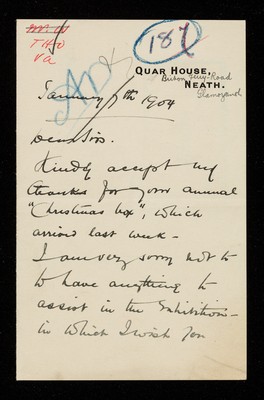 187
THO
Va
QUAR HOUSE,
Briton Ferry Road
NEATH.
Glamorgansh
January 7th 1904
Dear Sirs.
Kindly accept my
thanks for your annual
"Christmas box", which
arrived last week -
I am very sorry not to
to have anything to
assist in the Exhibition -
in which I wish you